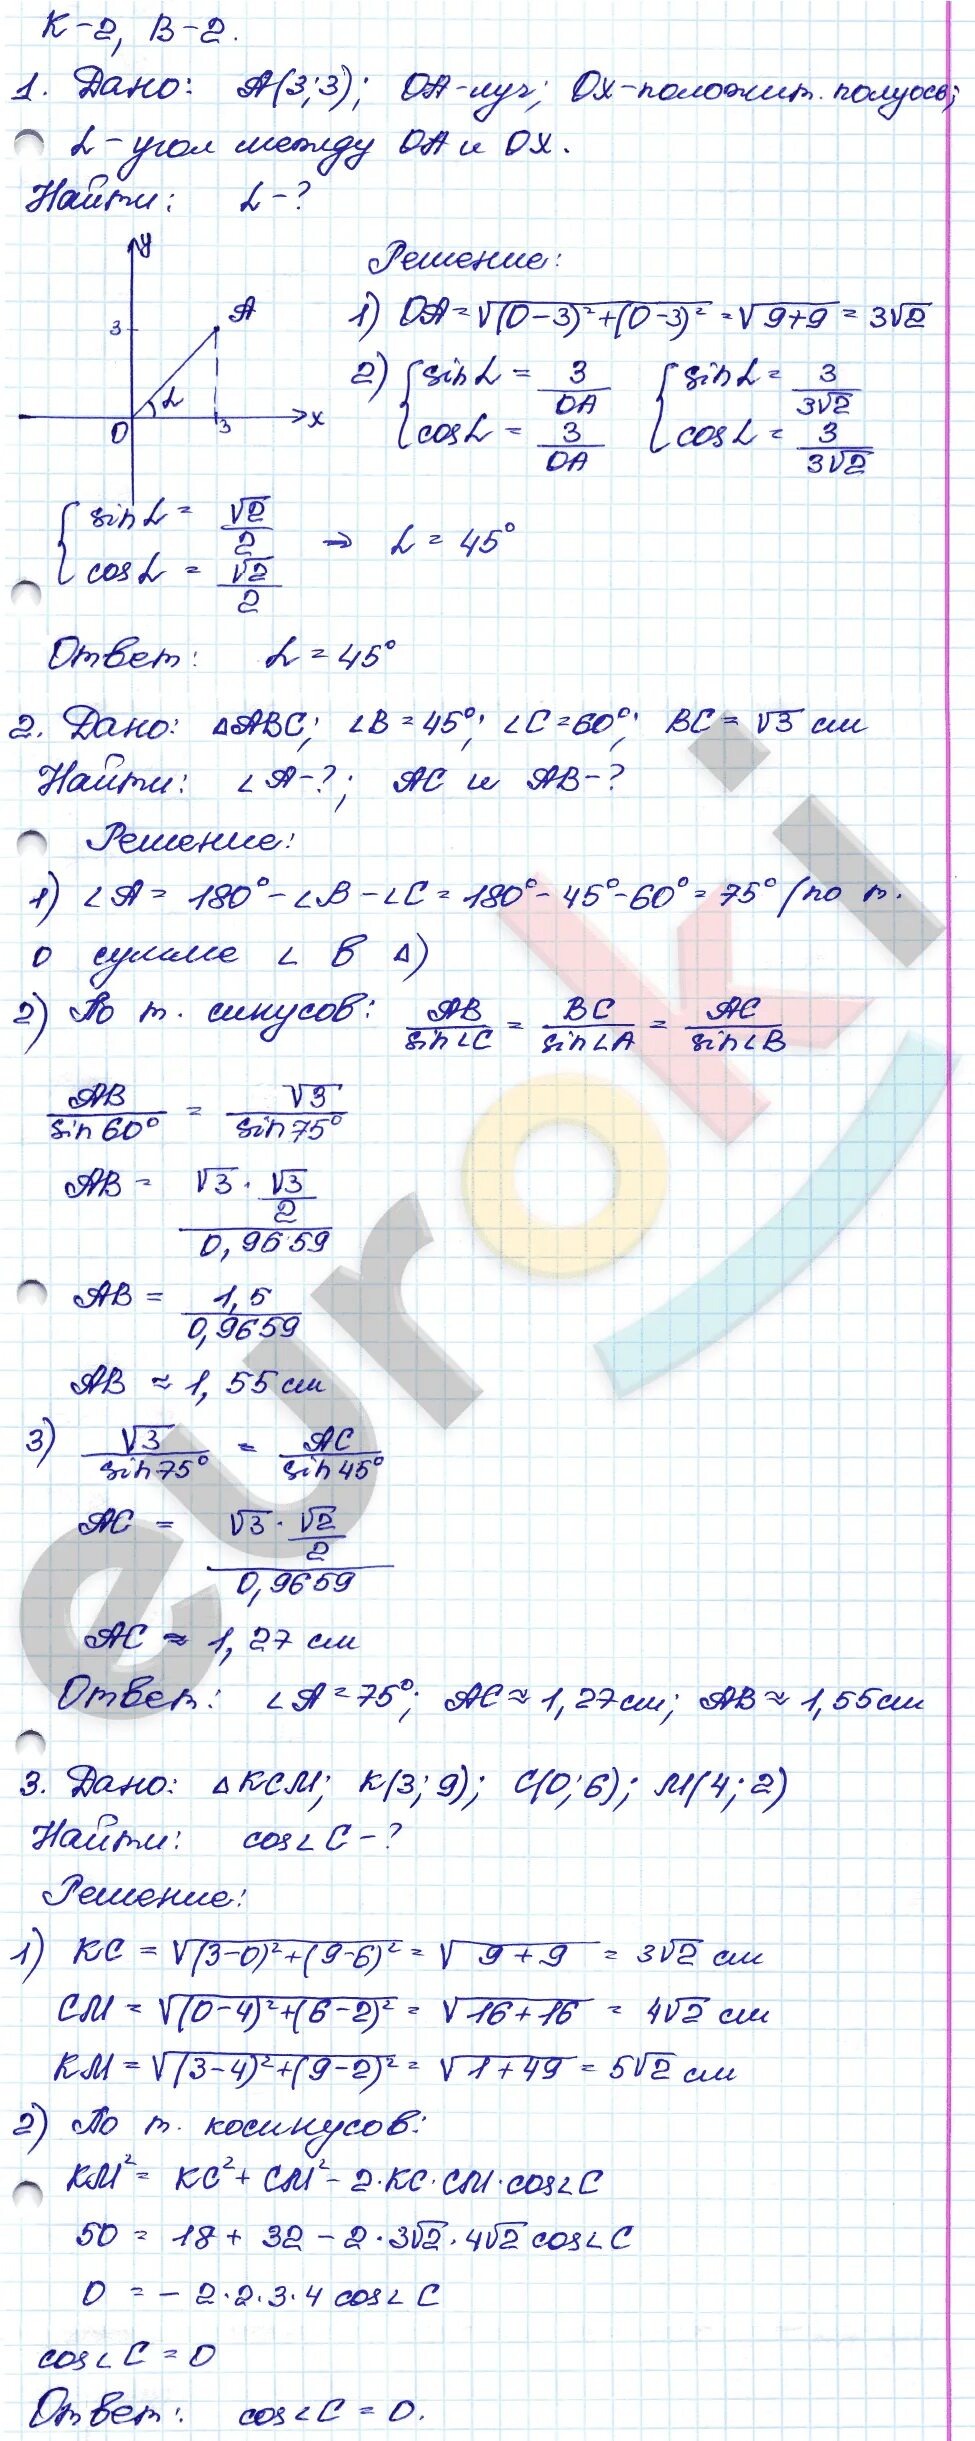 К-2, В-2.
1. Дано: А(3;3); ОА-луч; ОХ-положит. полуось;
L-угол между ОА и ОХ.
Найти: L-?
y
Решение:
A
3
1) ОА = √(0-3)²+(0-3)² = √9+9 = 3√2
2) { sin L = 3/OA { sin L = 3/3√2
L
O 3 x
cos L = 3/OA cos L = 3/3√2
{ sin L = √2/2
cos L = √2/2 ⇒ L = 45°
Ответ: L = 45°
2. Дано: △ABC; ∠B = 45°; ∠C = 60°; BC = √3 см
Найти: ∠A-?; AC и AB-?
Решение:
1) ∠A = 180° - ∠B - ∠C = 180° - 45° - 60° = 75° (по т.
о сумме ∠ в △)
2) По т. синусов: AB/sin∠C = BC/sin∠A = AC/sin∠B
AB/sin60° = √3/sin75°
AB = √3 · √3/2 / 0,9659
AB = 1,5/0,9659
AB ≈ 1,55 см
3) √3/sin75° = AC/sin45°
AC = √3 · √2/2 / 0,9659
AC ≈ 1,27 см
Ответ: ∠A = 75°; AC ≈ 1,27 см; AB ≈ 1,55 см
3. Дано: △KCM; K(3;9); C(0;6); M(4;2)
Найти: cos∠C-?
Решение:
1) KC = √(3-0)²+(9-6)² = √9+9 = 3√2 см
CM = √(0-4)²+(6-2)² = √16+16 = 4√2 см
KM = √(3-4)²+(9-2)² = √1+49 = 5√2 см
2) По т. косинусов:
KM² = KC² + CM² - 2·KC·CM·cos∠C
50 = 18 + 32 - 2·3√2·4√2 cos∠C
0 = - 2·2·3·4 cos∠C
cos∠C = 0
Ответ: cos∠C = 0.
euroki